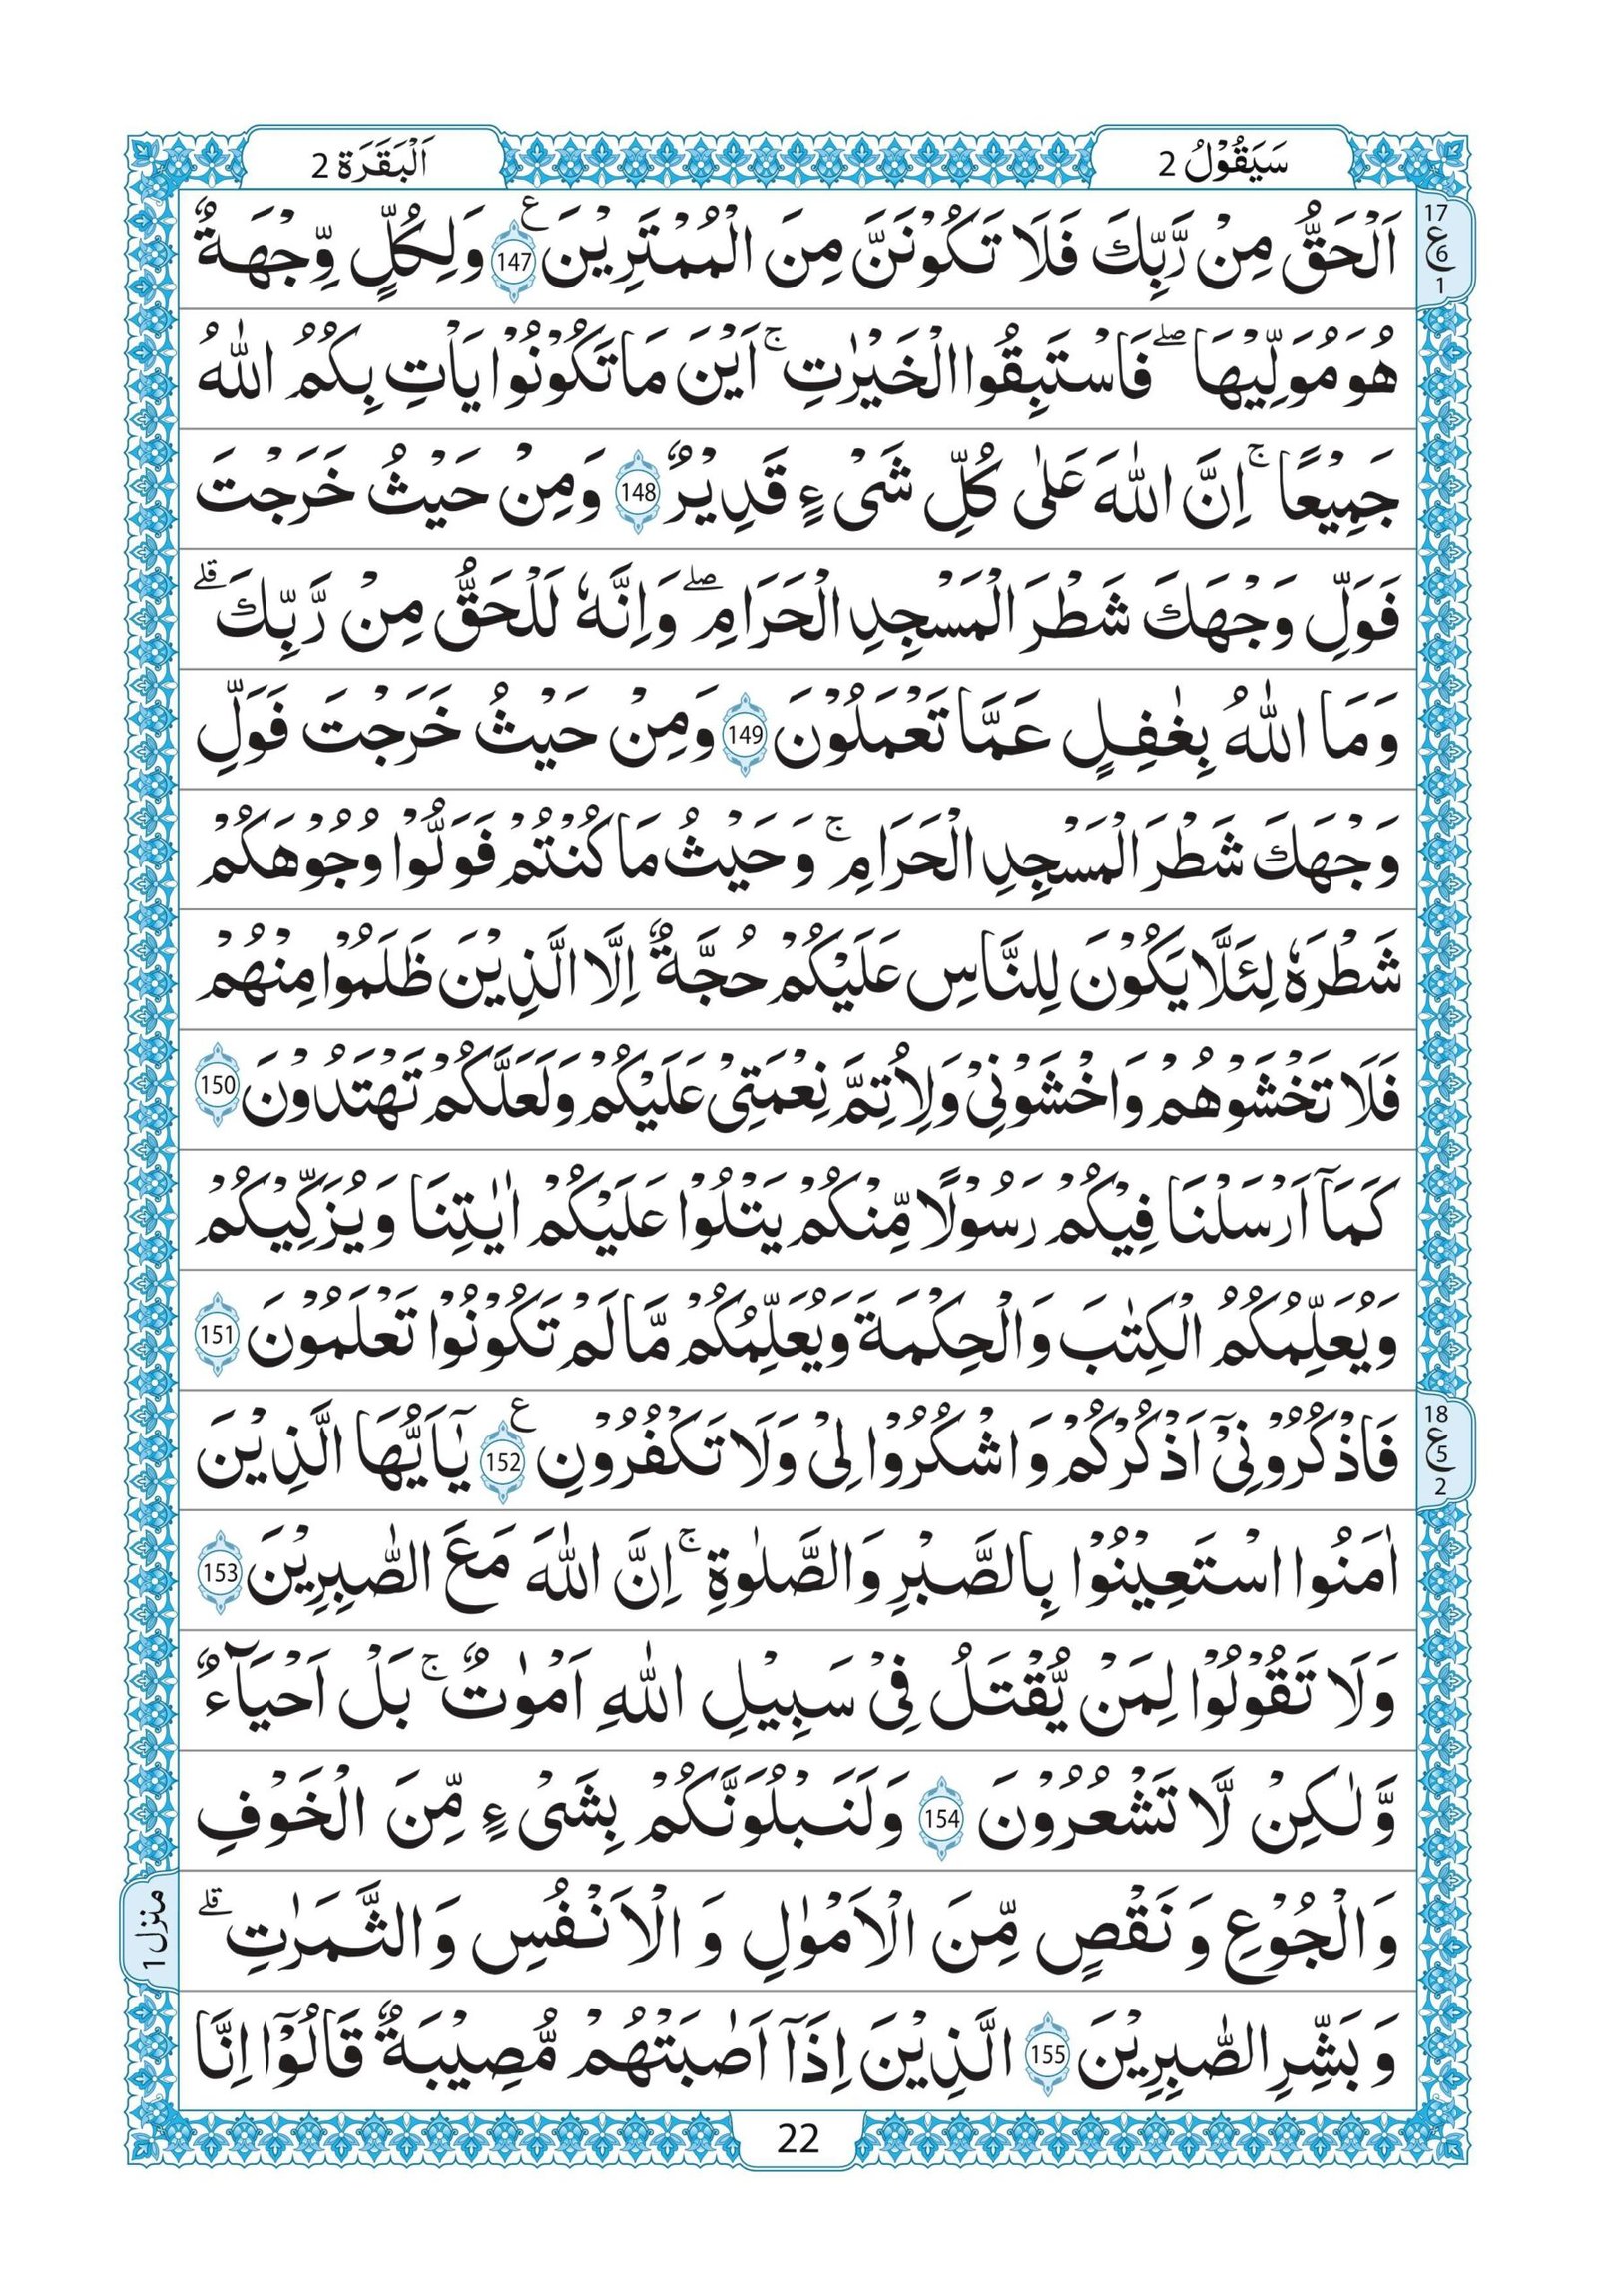 سَيَقُوْلُ 2
اَلْبَقَرَة 2
17
ع
6
1
اَلْحَقُّ مِنْ رَّبِّكَ فَلَا تَكُوْنَنَّ مِنَ الْمُمْتَرِيْنَ ع 147 وَلِكُلٍّ وِّجْهَةٌ
هُوَ مُوَلِّيْهَا ۖ فَاسْتَبِقُوا الْخَيْرٰتِ ۚ اَيْنَ مَا تَكُوْنُوْا يَاْتِ بِكُمُ اللّٰهُ
جَمِيْعًا ۚ اِنَّ اللّٰهَ عَلٰى كُلِّ شَىْءٍ قَدِيْرٌ 148 وَمِنْ حَيْثُ خَرَجْتَ
فَوَلِّ وَجْهَكَ شَطْرَ الْمَسْجِدِ الْحَرَامِ ۖ وَاِنَّهٗ لَلْحَقُّ مِنْ رَّبِّكَ ۗ
وَمَا اللّٰهُ بِغٰفِلٍ عَمَّا تَعْمَلُوْنَ 149 وَمِنْ حَيْثُ خَرَجْتَ فَوَلِّ
وَجْهَكَ شَطْرَ الْمَسْجِدِ الْحَرَامِ ۚ وَحَيْثُ مَا كُنْتُمْ فَوَلُّوْا وُجُوْهَكُمْ
شَطْرَهٗ لِئَلَّا يَكُوْنَ لِلنَّاسِ عَلَيْكُمْ حُجَّةٌ اِلَّا الَّذِيْنَ ظَلَمُوْا مِنْهُمْ
فَلَا تَخْشَوْهُمْ وَاخْشَوْنِيْ وَلِاُتِمَّ نِعْمَتِىْ عَلَيْكُمْ وَلَعَلَّكُمْ تَهْتَدُوْنَ 150
كَمَآ اَرْسَلْنَا فِيْكُمْ رَسُوْلًا مِّنْكُمْ يَتْلُوْا عَلَيْكُمْ اٰيٰتِنَا وَيُزَكِّيْكُمْ
وَيُعَلِّمُكُمُ الْكِتٰبَ وَالْحِكْمَةَ وَيُعَلِّمُكُمْ مَّا لَمْ تَكُوْنُوْا تَعْلَمُوْنَ 151
18
ع
5
2
فَاذْكُرُوْنِىْٓ اَذْكُرْكُمْ وَاشْكُرُوْا لِىْ وَلَا تَكْفُرُوْنِ ع 152 يٰٓاَيُّهَا الَّذِيْنَ
اٰمَنُوا اسْتَعِيْنُوْا بِالصَّبْرِ وَالصَّلٰوةِ ۚ اِنَّ اللّٰهَ مَعَ الصّٰبِرِيْنَ 153
وَلَا تَقُوْلُوْا لِمَنْ يُّقْتَلُ فِىْ سَبِيْلِ اللّٰهِ اَمْوٰتٌ ۚ بَلْ اَحْيَآءٌ
وَّلٰكِنْ لَّا تَشْعُرُوْنَ 154 وَلَنَبْلُوَنَّكُمْ بِشَىْءٍ مِّنَ الْخَوْفِ
وَالْجُوْعِ وَنَقْصٍ مِّنَ الْاَمْوٰلِ وَالْاَنْفُسِ وَالثَّمَرٰتِ ۗ
وَبَشِّرِ الصّٰبِرِيْنَ 155 الَّذِيْنَ اِذَآ اَصٰبَتْهُمْ مُّصِيْبَةٌ قَالُوْٓا اِنَّا
منزل 1
22